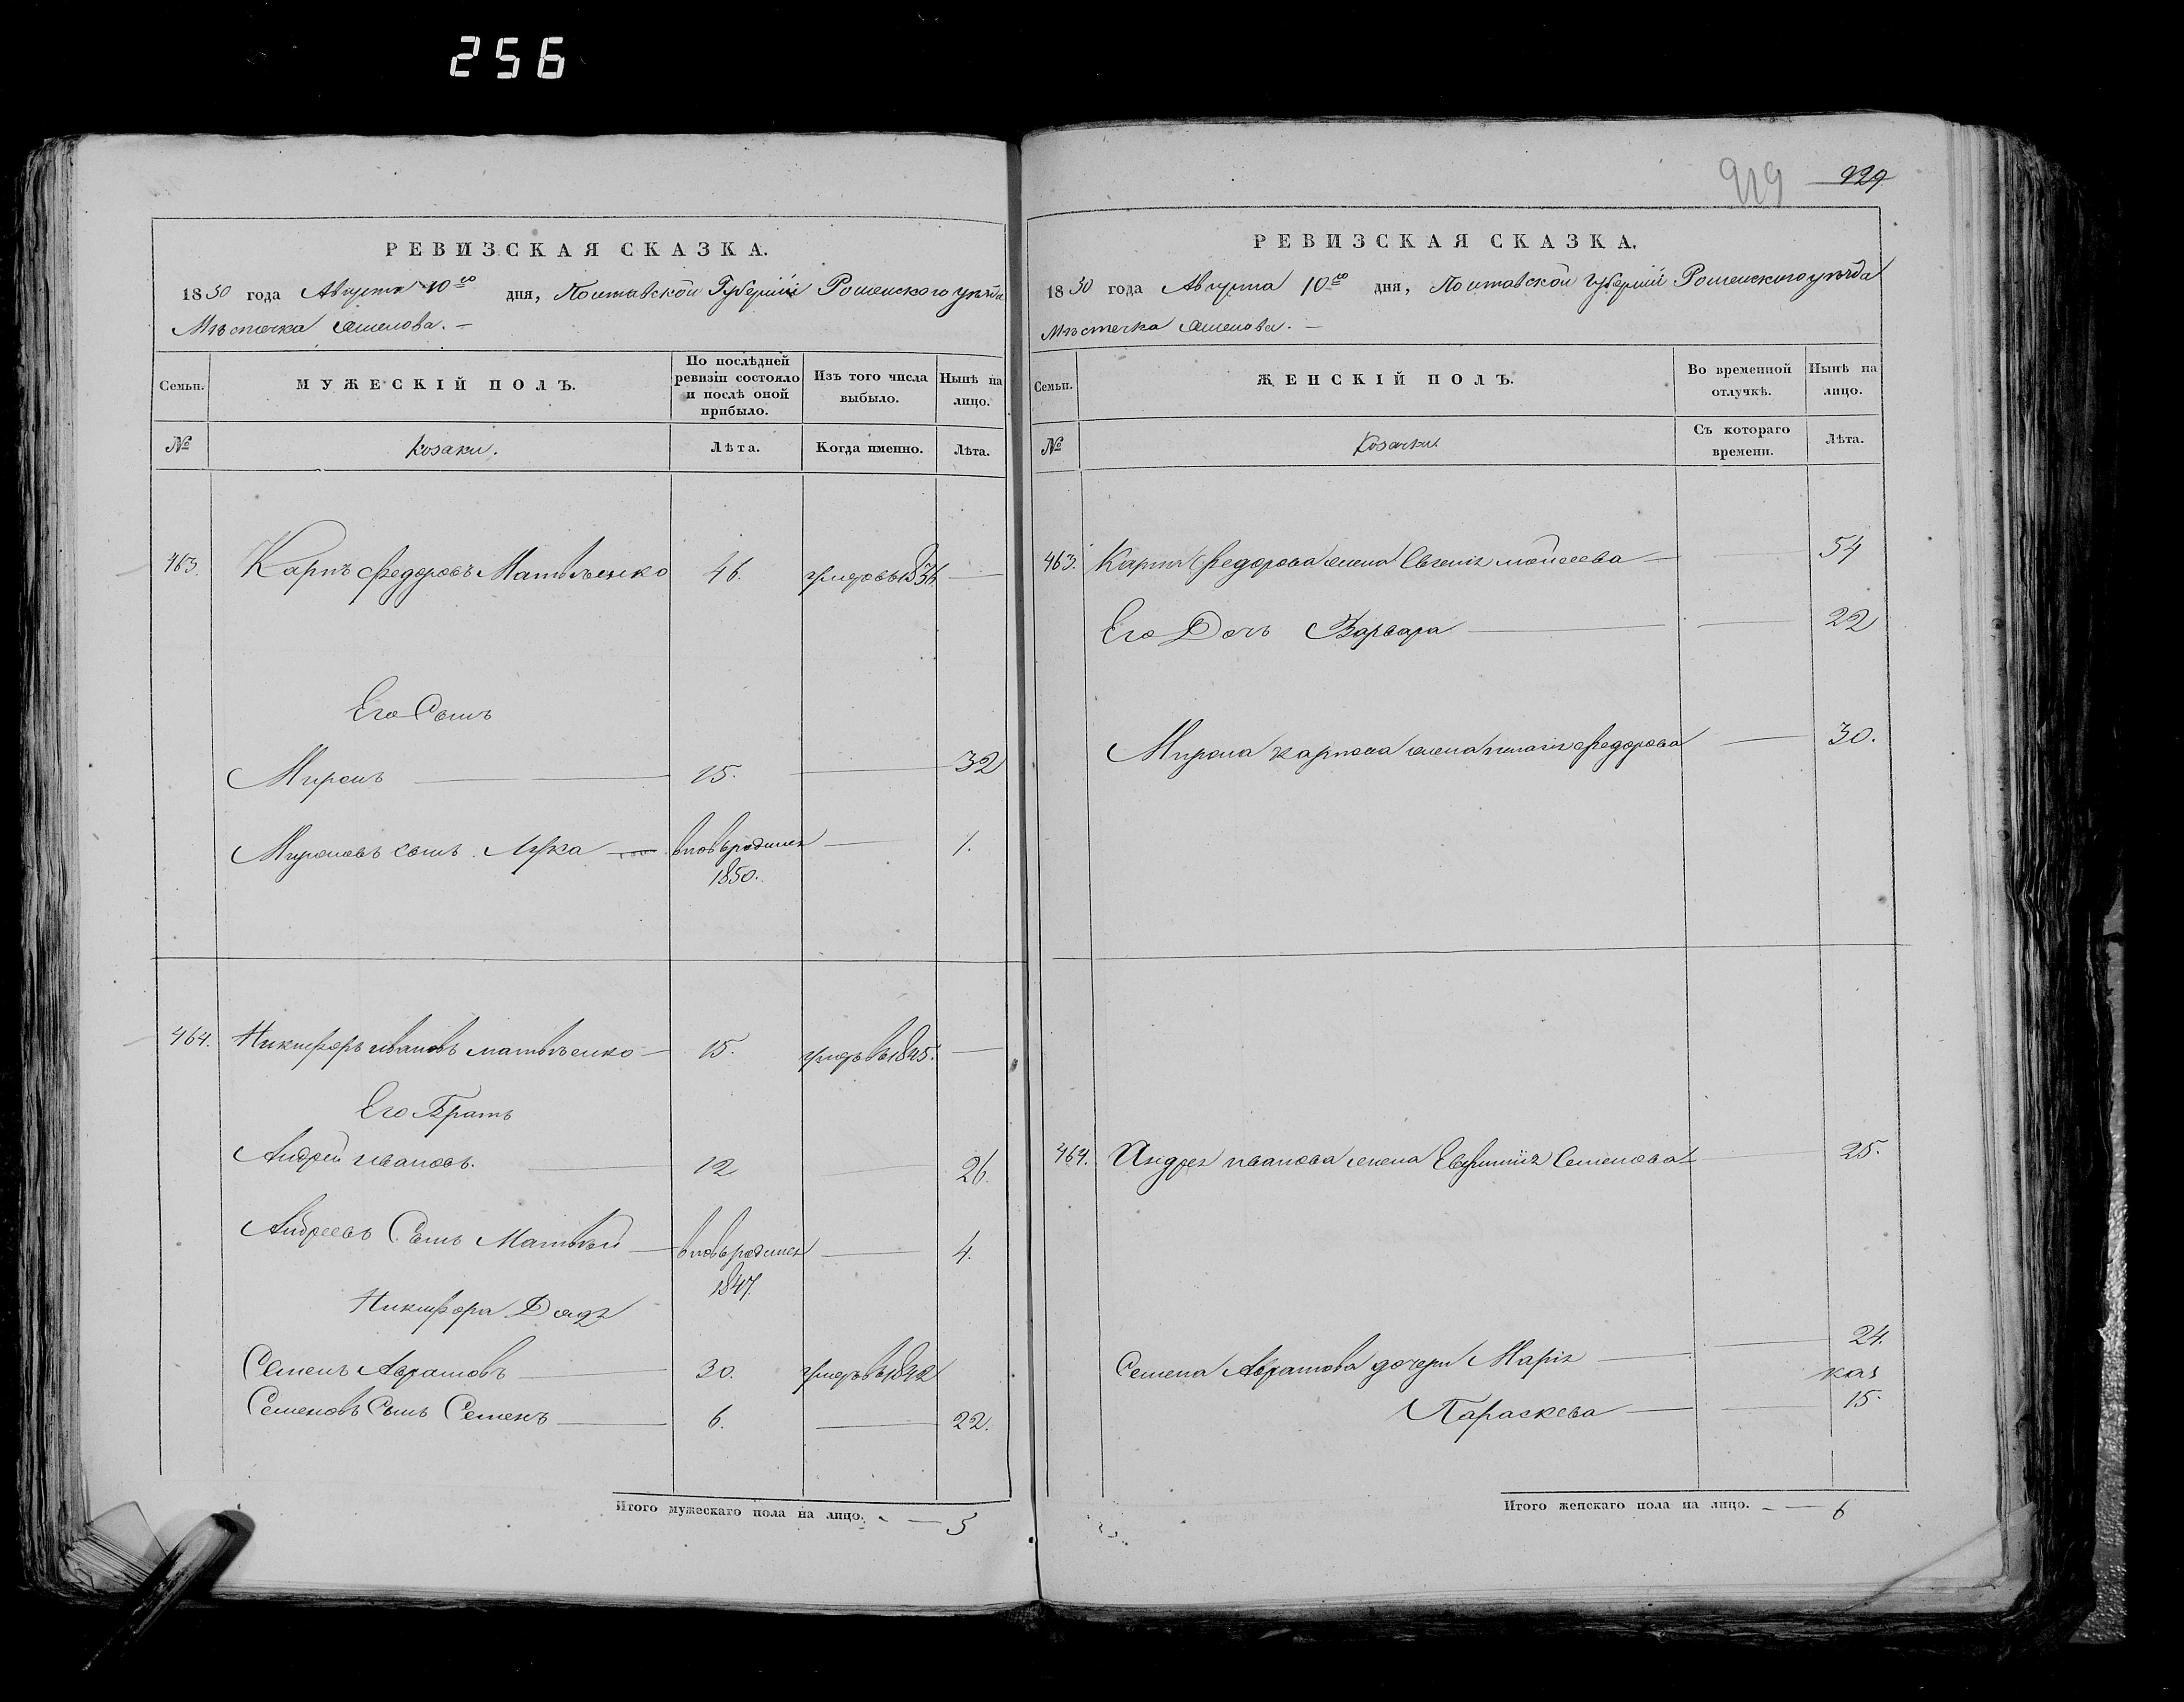 256
919 929
РЕВИЗСКАЯ СКАЗКА.
1850 года Августа 10го дня, Полтавской Губерніи Роменского уѣзда
Мѣстечка Смелова. —
Семьи. МУЖЕСКІЙ ПОЛЪ. По послѣдней ревизіи состояло и послѣ оной прибыло. Изъ того числа выбыло. Нынѣ на лицо.
№ Козаки. Лѣта. Когда именно. Лѣта.
463. Карпъ Федоровъ Матвѣенко 46. —
Его Сынъ
Миронъ — 15. — 32
Мироновъ сынъ Лука — вновьрожден — 1.
1850.
464. Никифоръ Ивановъ Матвѣенко — 15. умеръ въ 1845. —
Его Братъ
Андрей Ивановъ. 12 — 26.
Андреевъ Сынъ Матвѣй — вновьрожден — 4.
1847.
Никифора Дядя
Семенъ Аврамовъ — 30. умеръ въ 1842
Семеновъ Сынъ Семенъ — 6. — 22.
Итого мужескаго пола на лицо. — 5
РЕВИЗСКАЯ СКАЗКА.
1850 года Августа 10го дня, Полтавской Губерніи Роменского уѣзда
Мѣстечка Смелова. —
Семьи. ЖЕНСКІЙ ПОЛЪ. Во временной отлучкѣ. Нынѣ на лицо.
№ Козачки. Съ котораго времени. Лѣта.
463. Карпа Федорова жена Евгенія Моисеева — 54
Его Дочь Варвара — 22
Мирона Карпова жена Федорова — 30.
464. Андрея Иванова жена Евфимия Семенова — 25.
Семена Аврамова дочери Марія — 24.
Параскева — 15.
Итого женскаго пола на лицо. — 6